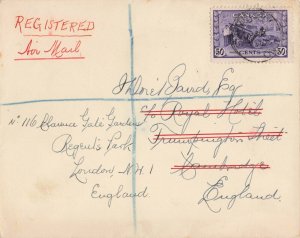 REGISTERED
Air Mail
CANADA
50 CENTS 50
André David, Esq
c/o Royal Hotel
Trumpington Street
Cambridge
England.
No 116 Clarence Gate Gardens
Regent's Park
London, N.W.1
England